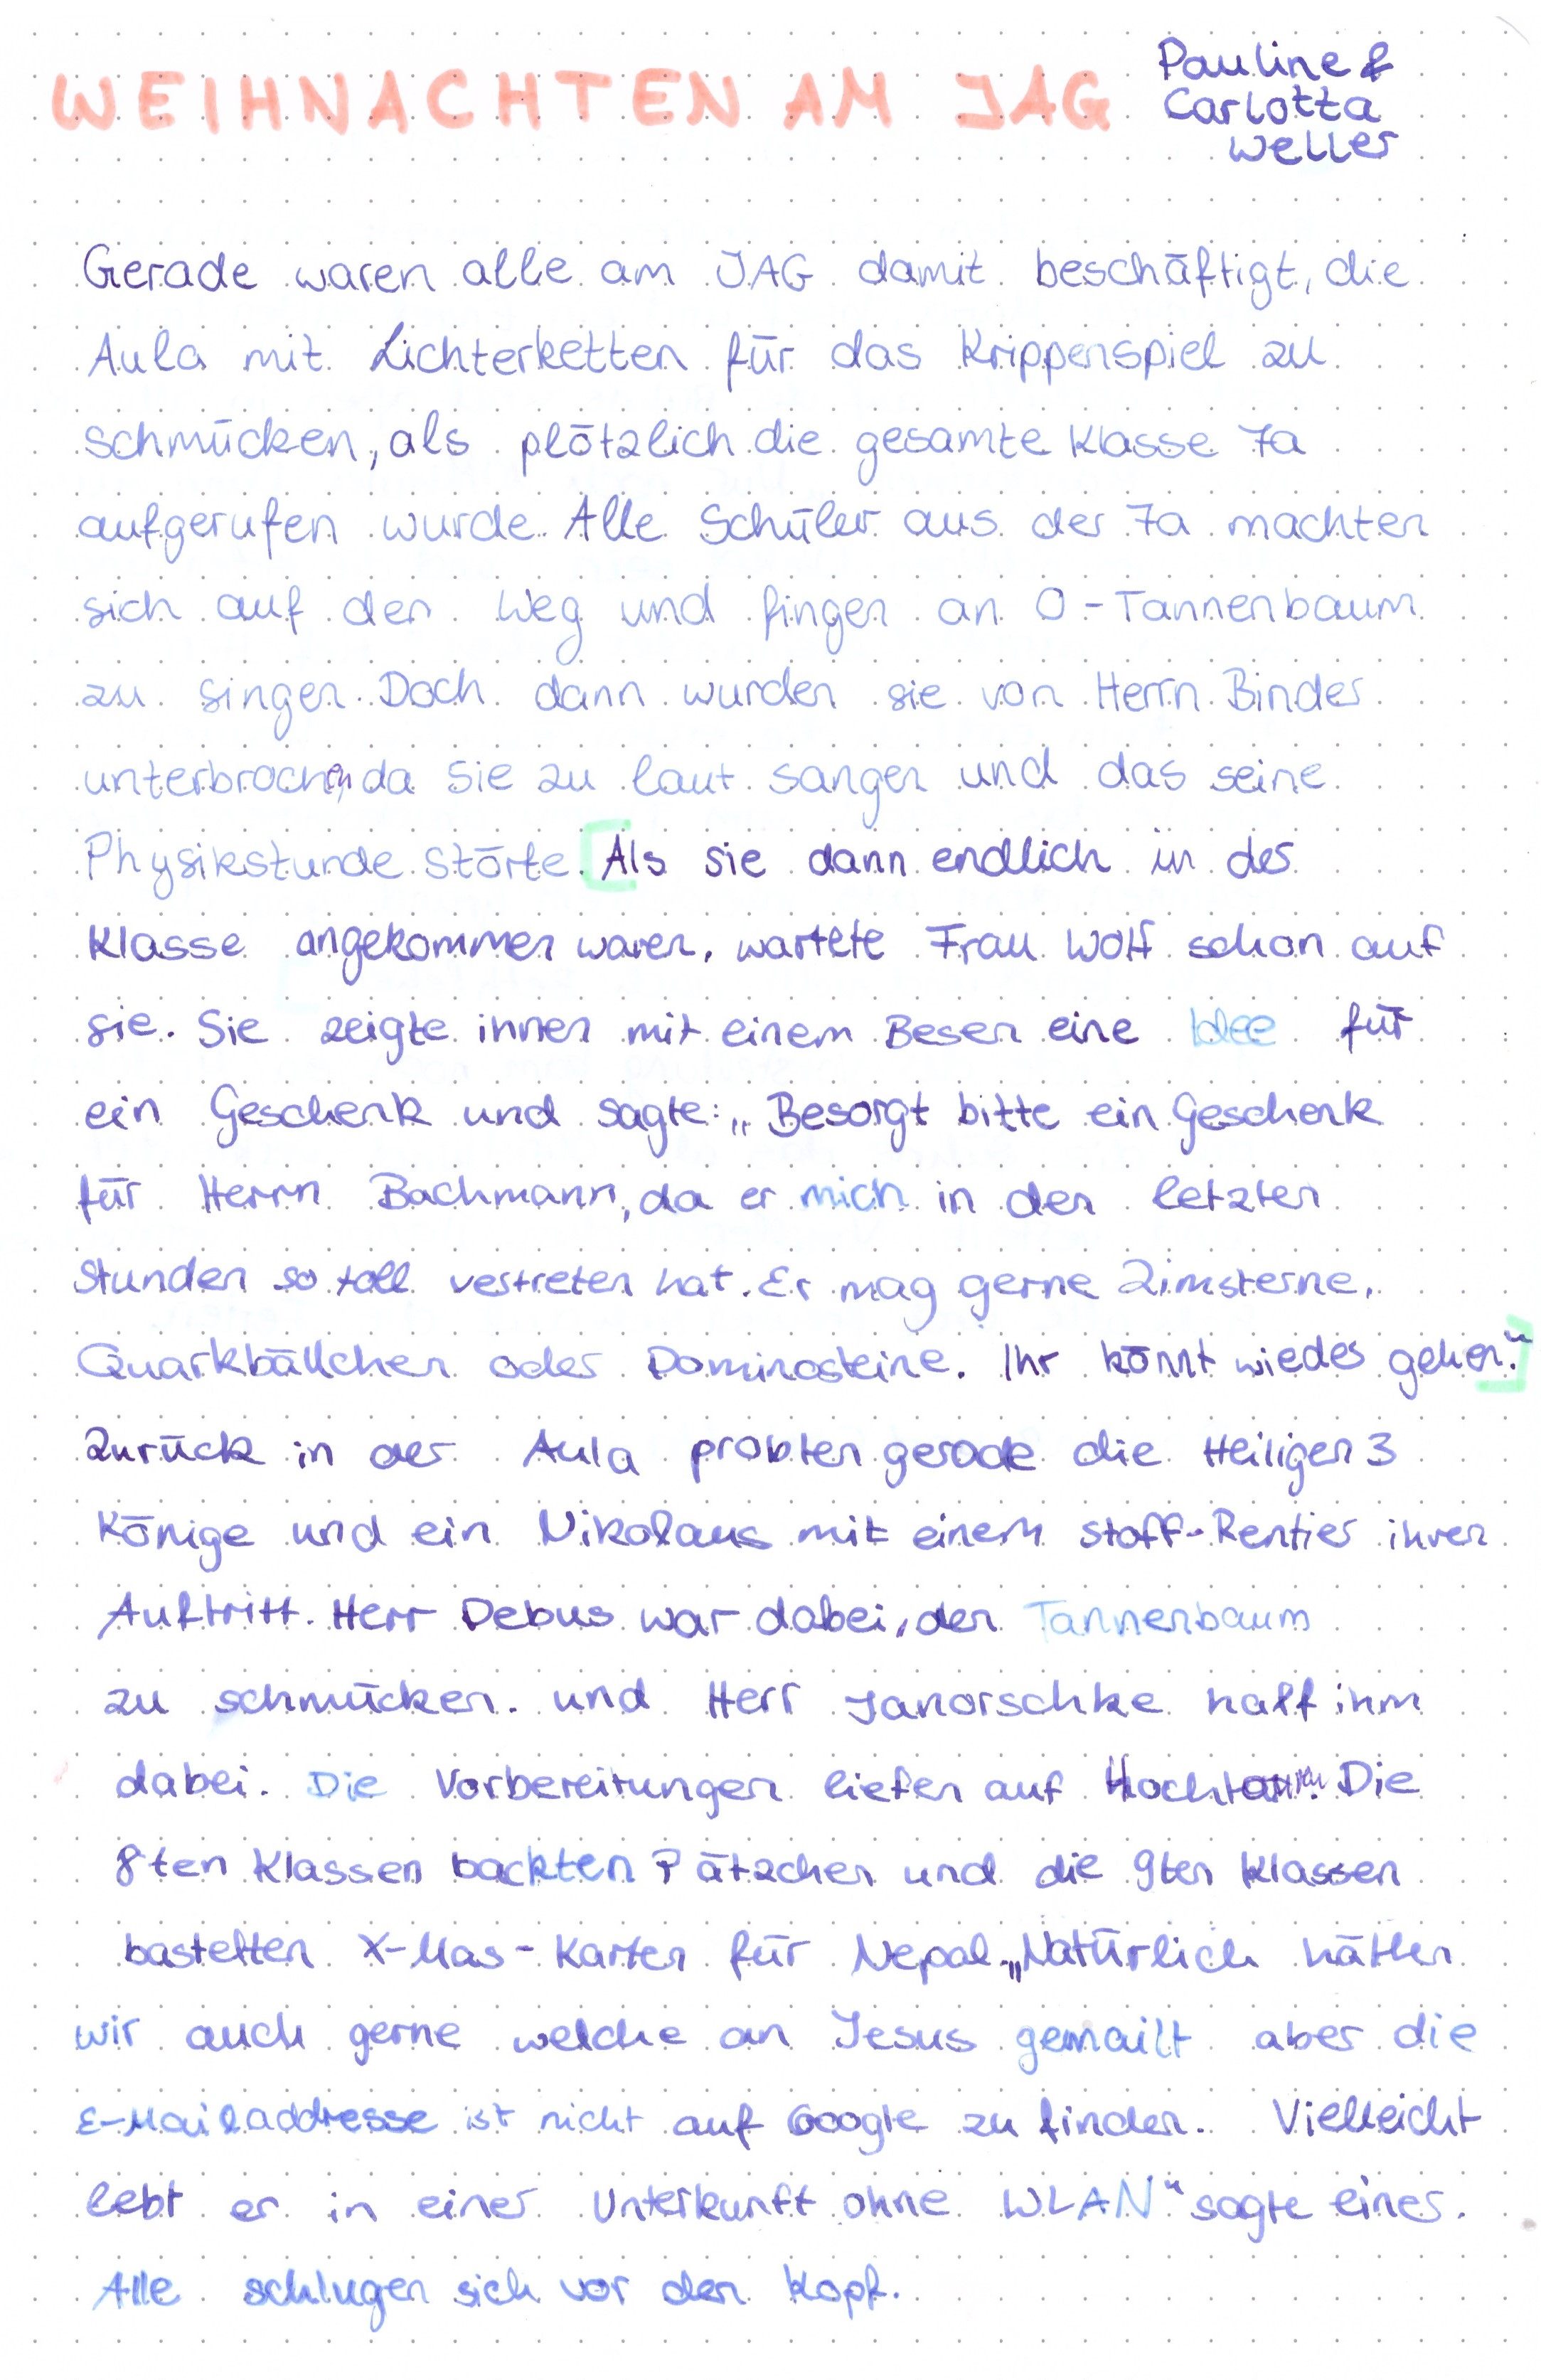 WEIHNACHTEN AM JAG
Pauline &
Carlotta
Weller
Gerade waren alle am JAG damit beschäftigt, die
Aula mit Lichterketten für das Krippenspiel zu
schmücken, als plötzlich die gesamte Klasse 7a
aufgerufen wurde. Alle Schüler aus der 7a machten
sich auf den Weg und fingen an O-Tannenbaum
zu singen. Doch dann wurden sie von Herrn Binder
unterbrochen, da sie zu laut sangen und das seine
Physikstunde störte. [Als sie dann endlich in der
Klasse angekommen waren, wartete Frau Wolf schon auf
sie. Sie zeigte ihnen mit einem Besen eine Idee für
ein Geschenk und sagte: „Besorgt bitte ein Geschenk
für Herrn Bachmann, da er mich in den letzten
Stunden so toll vertreten hat. Er mag gerne Zimsterne,
Quarkbällchen oder Dominosteine. Ihr könnt wieder gehen."]
Zurück in der Aula probten gerade die Heiligen 3
Könige und ein Nikolaus mit einem Stoff-Rentier ihren
Auftritt. Herr Debus war dabei, den Tannenbaum
zu schmücken. und Herr Janorschke half ihm
dabei. Die Vorbereitungen liefen auf Die
8ten Klassen backten Pätzchen und die 9ten Klassen
bastelten X-Mas-Karten für Nepal. „Natürlich hätten
wir auch gerne welche an Jesus gemailt aber die
E-Mailaddresse ist nicht auf Google zu finden. Vielleicht
lebt er in einer Unterkunft ohne WLAN" sagte einer.
Alle schlugen sich vor den Kopf.